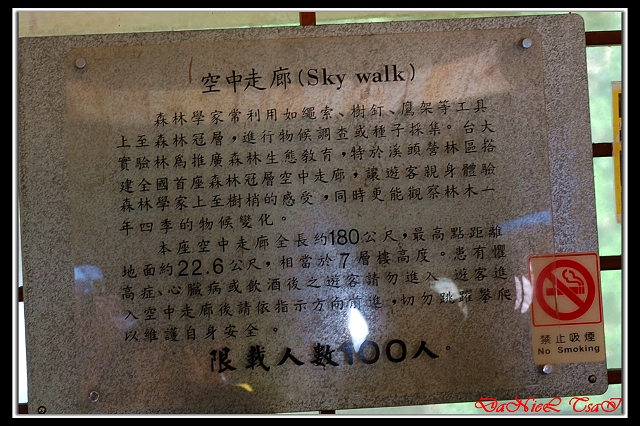 空中走廊(Sky walk)
森林學家常利用如繩索、樹釘、鷹架等工具
上至森林冠層，進行物候調查或種子採集。台大
實驗林為推廣森林生態教育，特於溪頭營林區搭
建全國首座森林冠層空中走廊，讓遊客親身體驗
森林學家上至樹梢的感受，同時更能觀察林木一
年四季的物候變化。
本座空中走廊全長約180公尺，最高點距離
地面約22.6公尺，相當於7層樓高度。患有懼
高症、心臟病或飲酒後之遊客請勿進入。遊客進
入空中走廊後請依指示方向前進，切勿跳躍攀爬
以維護自身安全。
限載人數100人。
禁止吸煙
No Smoking
DaNieL TsaI